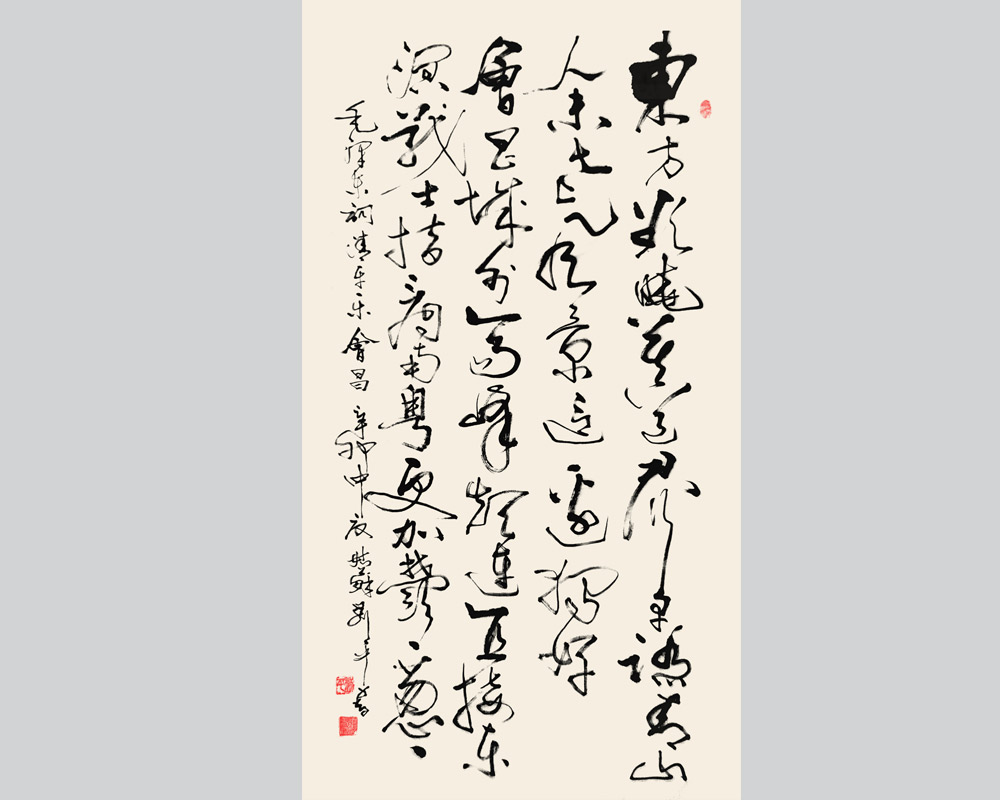 東方欲曉莫道君行早踏遍青山
人未老风景這邊獨好
會昌城外高峰顛連直接东
溟戰士指看南粵更加鬱鬱葱葱
毛澤东詞清平乐會昌 辛卯中夏 姑蘇劉书